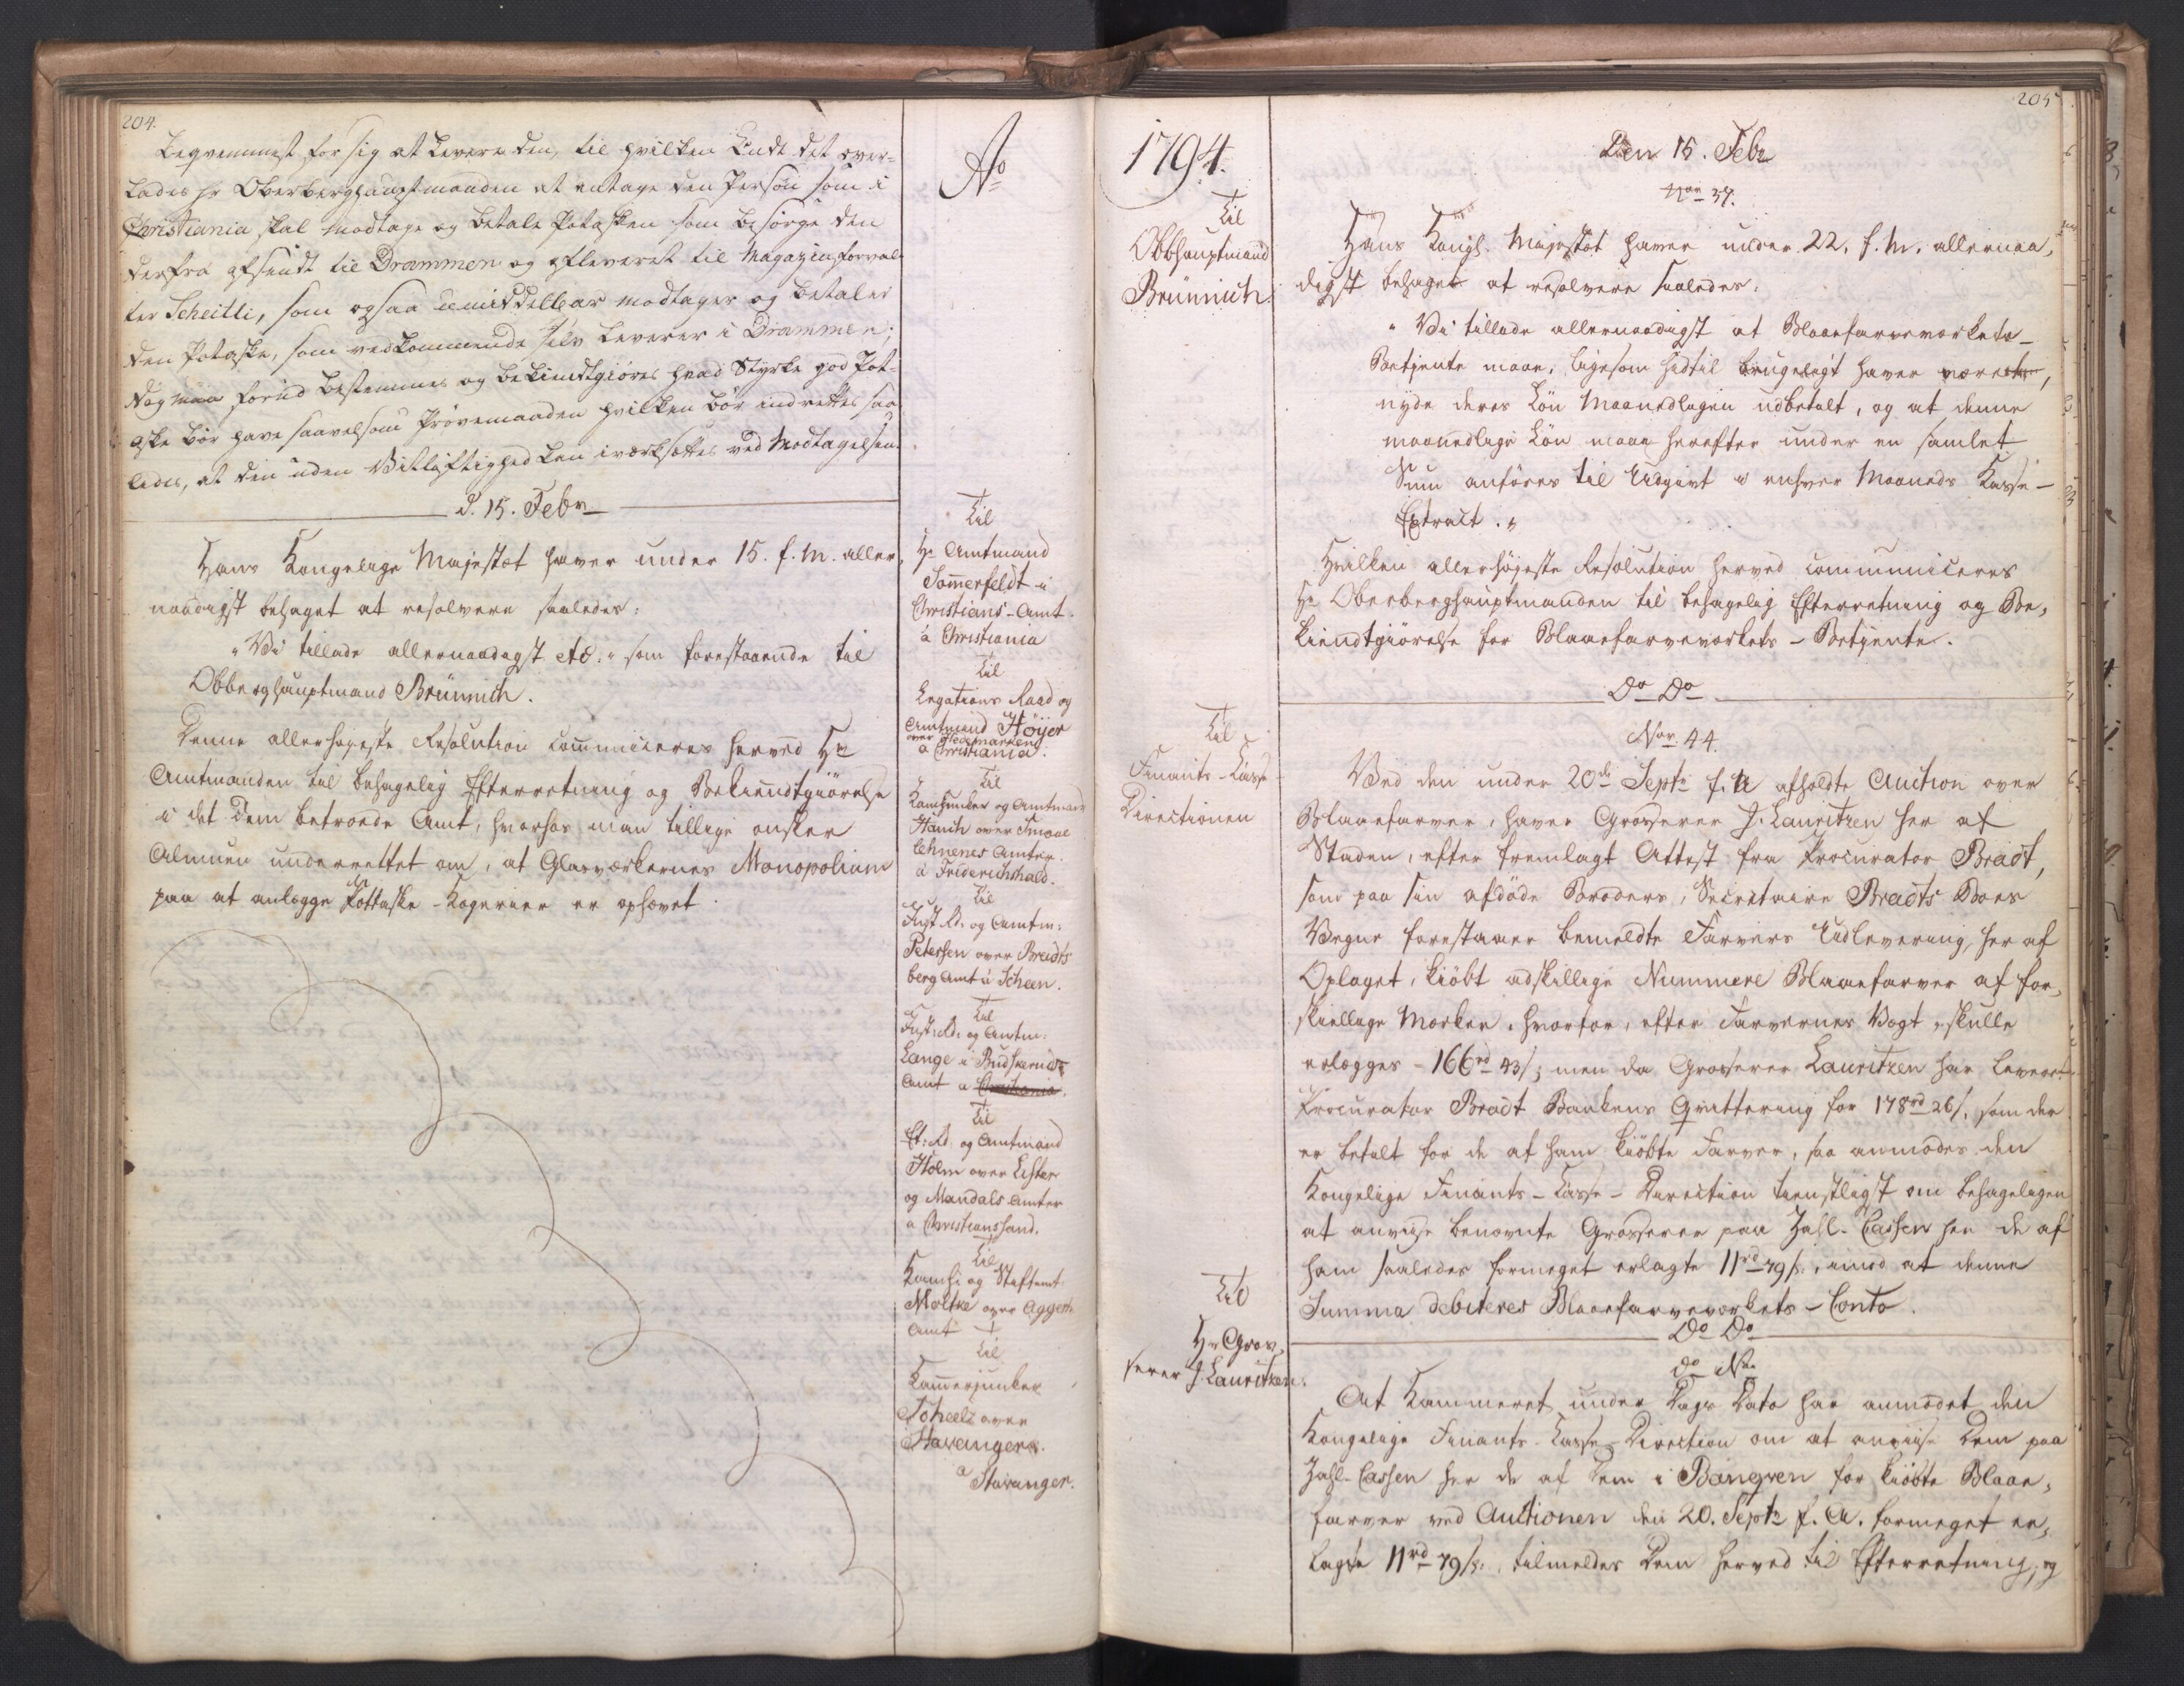 204.
beqvemmest for sig at levere den, til hvilken Ende det over-
lades Hr Oberberghauptmanden at antage den Person som i
Christiania skal modtage og betale Potasken som besörge den
derfra afsendt til Drammen og afleveret til Magazinforval-
ter Scheitli, som ogsaa umiddelbar modtager og betaler
den Potaske, som vedkommende selv leverer i Drammen;
Dog maa forud bestemmes og bekiendtgiöres hvad Styrke god Pot-
aske bör have saavelsom Prövemaaden hvilken bör indrettes saa
ledes, at den uden Vitlöftighed kan iværksættes ved Modtagelsen.
d. 15. Febr
Hans Kongelige Majestæt haver under 15. f. M. aller
naadigst behaget at resolvere saaledes:
"Vi tillade allernaadigst etc." som forestaaende til
Obberghauptmand Brünnich.
Denne allerhöyeste Resolution communiceres herved Hr
Amtmanden til behagelig Efterretning og Bekiendtgiörelse
i det Dem betroede Amt, hvorhos man tillige önsker
Almuen underrettet om, at Glasværkernes Monopolium
paa at anlægge Pottaske-Kogerier er ophævet.
Ao
Til
Hr Amtmand
Sommerfeldt i
Christians-Amt
a Christiania
Til
Legations Raad og
Amtmand Höyer
over Hedemarken
a Christiania.
Til
Kamjunker og Amtmand
Hauch over Smaae
lehnenes Amter.
a Friderichshald.
Til
Just. Rd. og Amtm:
Petersen over Bradts
berg Amt a Scheen.
Til
Just: Rd: og Amtm:
Lange i Budskeruds
Amt a Christiania.
Til
Et: Rd. og Amtmand
Holm over Lister
og Mandals Amter
a Christianssand.
Til
Kamh: og Stiftamt
Moltke over Aggers
Amt
Til
Kammerjunker
Scheel over
Stavanger
a Stavanger.
1794.
Til
Obbhauptmand
Brünnich
Til
Finants-Casse
Directionen
Til
Hr Gros,
serer J. Lauritzen.
205
Den 15. Febr
Nor 37.
Hans Kongl. Majestæt haver under 22. f. M. allernaa,
digst behaget at resolvere saaledes:
"Vi tillade allernaadigst at Blaaefarveværkets-
Betjente maae, ligesom hidtil brugeligt haver været,
nyde deres Lön Maanedligen udbetalt, og at denne
maanedlige Lön maae herefter under en samlet
Sum anföres til Udgivt i enhver Maaneds Kasse-
Extract."
Hvilken allerhöjeste Resolution herved communiceres
Hr Oberberghauptmanden til behagelig Efterretning og Be,
kiendtgiörelse for Blaaefarveværkets-Betjente.
Do Do
Nor 44.
Ved den under 20de Septr f. A. afholdte Auction over
Blaaefarver, haver Grosserer J. Lauritzen her af
Staden, efter fremlagt Attest fra Procurator Bradt,
som paa sin afdöde Broders, Secretaire Bradts Boes
Vegne forestaaer bemeldte Farvers Udlevering her af
Oplaget, kiöbt adskillige Nummere Blaaefarver af for,
skiellige Mærker, hvorfor, efter Farvernes Vægt, skulle
erlægges - 166rd 43/; men da Grosserer Lauritzen har leveret
Procurator Bradt Bankens Qvittering for 178rd 26/. som der
er betalt for de af ham kiöbte Farver, saa anmodes den
Kongelige Finants-Casse-Direction tienstligst om behageligen
at anvise benævnte Grosserer paa Zahl-Cassen her de af
ham saaledes formeget erlagte 11rd 79/s:, imod at denne
Summa debiteres Blaaefarveværkets-Conto.
Do Do
do No
At Kammeret under Dags Dato har anmodet den
Kongelige Finants-Casse-Direction om at anvise Dem paa
Zahl-Cassen her de af Dem i Banqven for kiöbte Blaae,
farver ved Auctionen den 20. Septr f. A. formeget er,
lagte 11rd 79/s: tilmeldes Dem herved til Efterretning, og